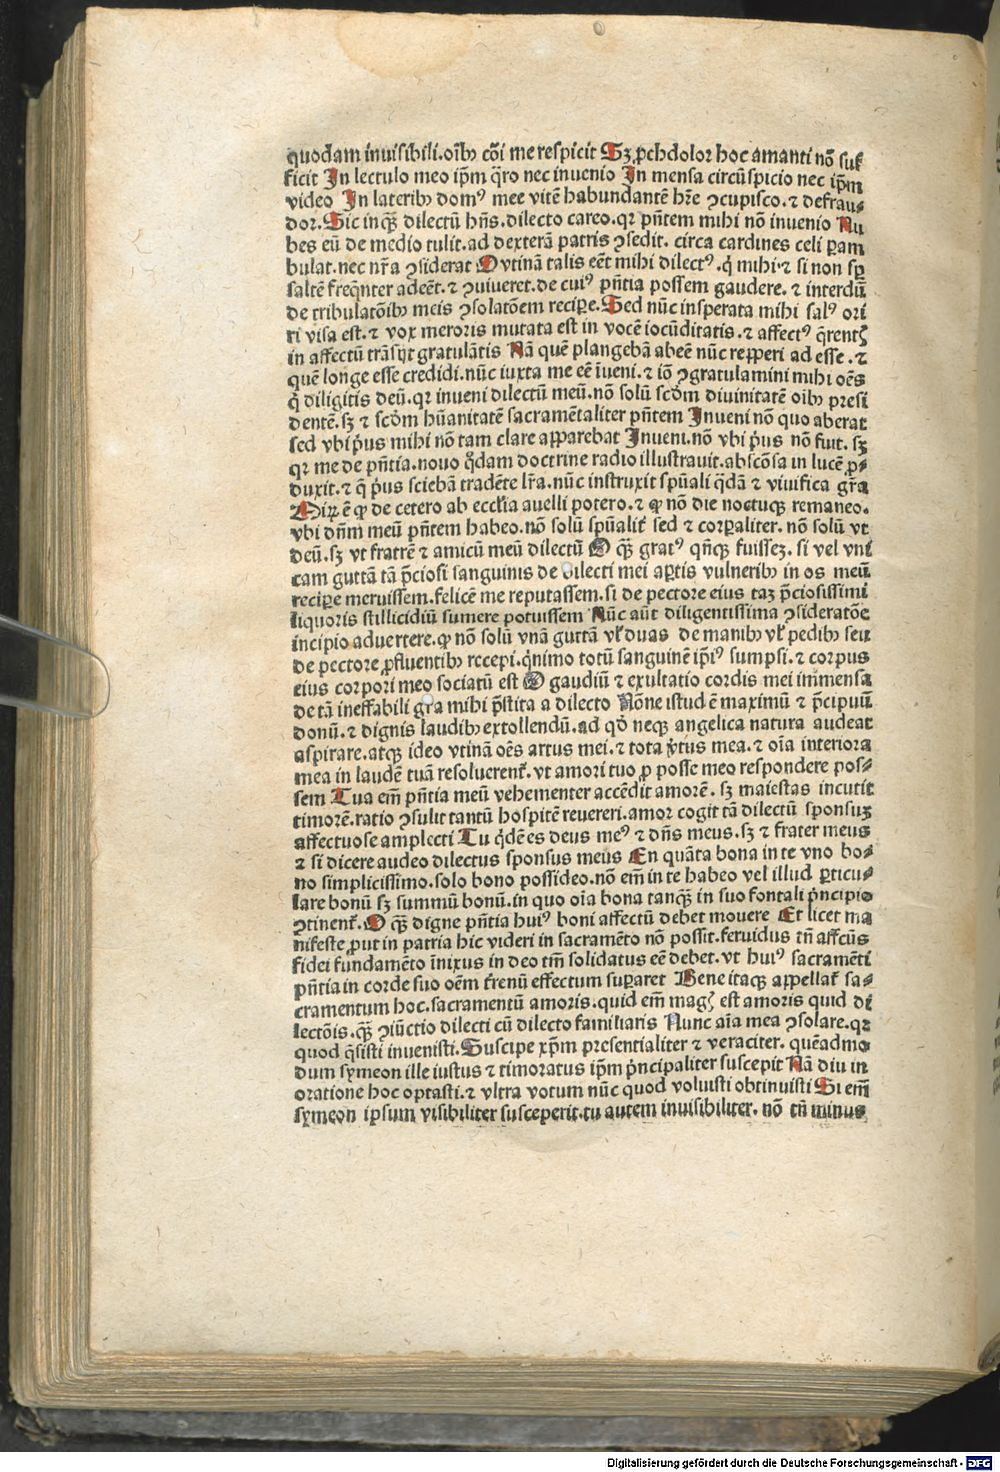 quodam inuisibili.oĩbꝫ cõi me respicit Sꝫ ꝓchdolor hoc amanti nõ suf
ficit In lectulo meo ip̃m q̃ro nec inuenio In mensa circũspicio nec ip̃m
video In lateribꝫ domꝰ mee vitẽ habundantẽ hr̃e ꝯcupisco.⁊ defrau⸗
dor.Sic inqꝫ̃ dilectũ hñs.dilecto careo.qꝛ pñtem mihi nõ inuenio Nu
bes eũ de medio tulit.ad dexterã patris ꝯsedit. circa cardines celi ꝑam
bulat.nec nr̃a ꝯsiderat O vtinã talis eẽt mihi dilectꝰ.q̇ mihi.⁊ si non sꝑ
saltẽ freq̃nter adeẽt.⁊ ꝯuiueret.de cuiꝰ pñtia possem gaudere.⁊ interdũ
de tribulatõibꝫ meis ꝯsolatõem reciꝑe.Sed nũc insperata mihi salꝰ ori
ri visa est.⁊ vox meroris mutata est in vocẽ iocũditatis.⁊ affectꝰ q̃rentꝭ
in affectũ trãsijt gratulãtis Nã quẽ plangebã abeẽ nũc repperi ad esse.⁊
quẽ longe esse credidi.nũc iuxta me eẽ ĩueni.⁊ iõ ꝯgratulamini mihi oẽs
q̇ diligitis deũ.qꝛ inueni dilectũ meũ.nõ solũ scd̃m diuinitatẽ oĩbꝫ presi
dentẽ.sꝫ ⁊ scd̃m hũanitatẽ sacramẽtaliter pñtem Inueni nõ quo aberat
sed vbi p̃us mihi nõ tam clare apparebat Inueni.nõ vbi p̃us nõ fuit. sꝫ
qꝛ me de pñtia.nouo q̊dam doctrine radio illustrauit.abscõsa in lucẽ ꝓ⸗
duxit.⁊ q̃ p̃us sciebã tradẽte lr̃a.nũc instruxit spũali q̃dã ⁊ viuifica gr̃a
Miꝝ ẽ ꝙ de cetero ab eccl̃ia auelli potero.⁊ ꝙ nõ die noctuqꝫ remaneo.
vbi dñm meũ pñtem habeo.nõ solũ spũalit̃ sed ⁊ corꝑaliter. nõ solũ vt
deũ.sꝫ vt fratrẽ ⁊ amicũ meũ dilectũ O qꝫ̃ gratꝰ qñqꝫ fuisseꝫ. si vel vni
cam guttã tã p̃ciosi sanguinis de dilecti mei aꝑtis vulneribꝫ in os meũ
reciꝑe meruissem.felicẽ me reputassem.si de pectore eius taꝫ p̃ciosissimi
liquoris stillicidiũ sumere potuissem Nũc aũt diligentissima ꝯsideratõe
incipio aduertere.ꝙ nõ solũ vnã guttã vl̃ duas de manibꝫ vl̃ pedibꝫ seu
de pectore ꝓfluentibꝫ recepi.q̇nimo totũ sanguinẽ ip̃iꝰ sumpsi.⁊ corpus
eius corpori meo sociatũ est O gaudiũ ⁊ exultatio cordis mei immensa
de tã ineffabili gr̃a mihi p̃stita a dilecto Nõne istud ẽ maximũ ⁊ p̃cipuũ
donũ.⁊ dignis laudibꝫ extollendũ.ad qd̃ neqꝫ angelica natura audeat
aspirare.atqꝫ ideo vtinã oẽs artus mei.⁊ tota v̓tus mea.⁊ oĩa interiora
mea in laudẽ tuã resoluerent̃.vt amori tuo ꝓ posse meo respondere pos⸗
sem Tua em̃ pñtia meũ vehementer accẽdit amorẽ. sꝫ maiestas incutit
timorẽ.ratio ꝯsulit tantũ hospitẽ reuereri.amor cogit tã dilectũ sponsuꝫ
affectuose amplecti Tu q̇dẽ es deus meꝰ ⁊ dñs meus.sꝫ ⁊ frater meus
⁊ si dicere audeo dilectus sponsus meus En quãta bona in te vno bo⸗
no simplicissimo.solo bono possideo.nõ em̃ in te habeo vel illud ꝑticu⸗
lare bonũ sꝫ summũ bonũ.in quo oĩa bona tanqꝫ̃ in suo fontali p̃ncipio
ꝯtinent̃.O qꝫ̃ digne pñtia huiꝰ boni affectũ debet mouere Et licet ma
nifeste ꝓut in patria hic videri in sacramẽto nõ possit.feruidus tñ affcũs
fidei fundamẽto ĩnixus in deo tm̃ solidatus eẽ debet.vt huiꝰ sacramẽti
pñtia in corde suo oẽm t̃renũ effectum suꝑaret Bene itaqꝫ appellat̃ sa⸗
cramentum hoc.sacramentũ amoris.quid em̃ magꝭ est amoris quid di
lectõis.qꝫ̃ ꝯiũctio dilecti cũ dilecto familiaris Nunc aĩa mea ꝯsolare.qꝛ
quod q̃sisti inuenisti.Suscipe xp̃m presentialiter ⁊ veraciter. quẽadmo
dum symeon ille iustus ⁊ timoratus ip̃m p̃ncipaliter suscepit Nã diu in
oratione hoc optasti.⁊ vltra votum nũc quod voluisti obtinuisti Si em̃
symeon ipsum visibiliter susceperit.tu autem inuisibiliter. nõ tñ minus
Digitalisierung gefördert durch die Deutsche Forschungsgemeinschaft - DFG